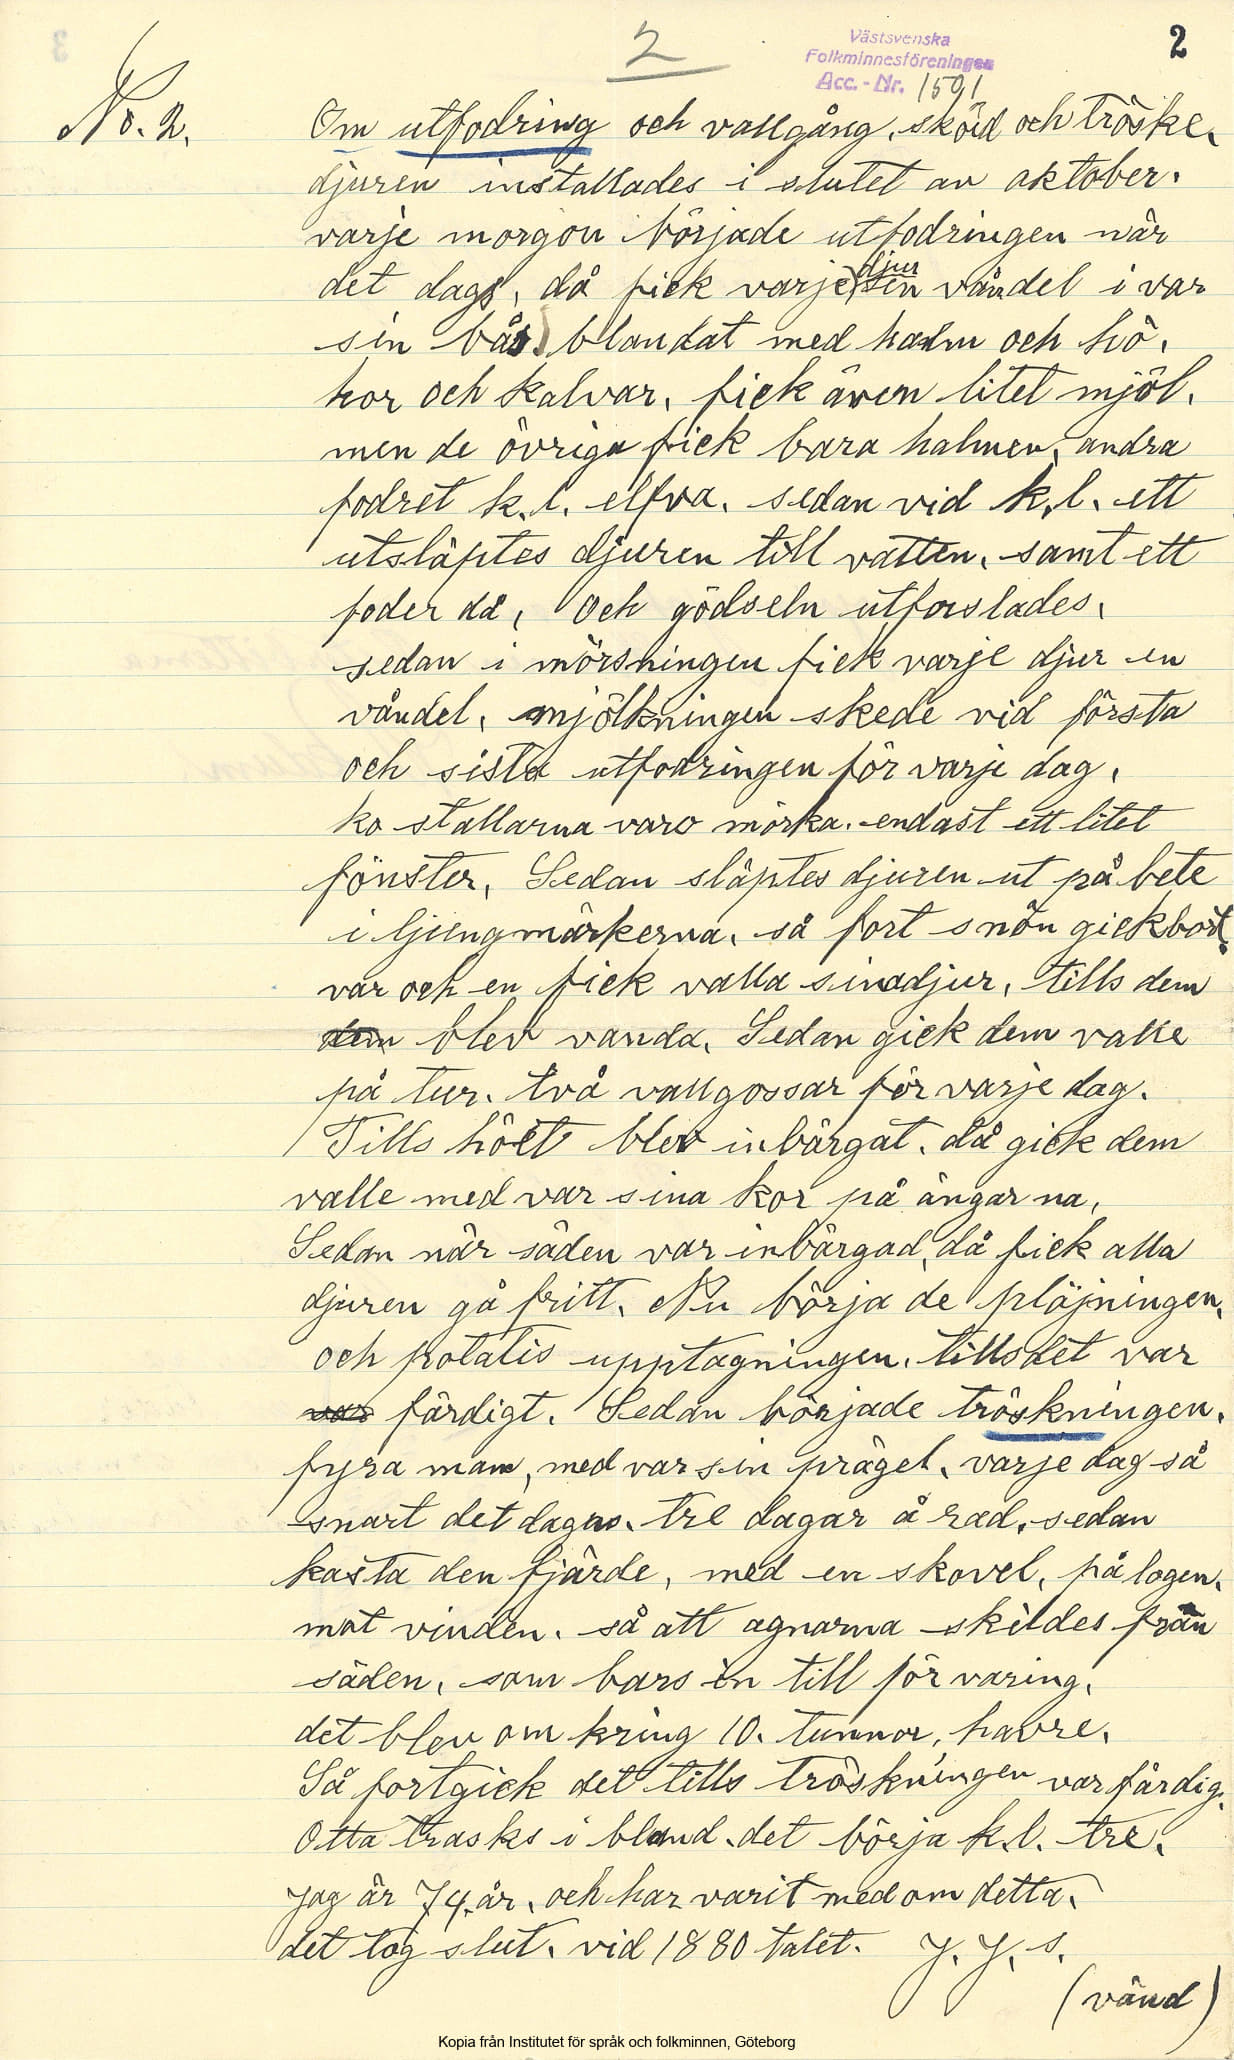 2
Västsvenska
Folkminnesföreningen
Acc.-Nr. 1591
2
No. 2.
Om utfodring och vallgång, skörd och tröske.
djuren installades i slutet av aktober.
varje morgon började utfodringen när
det dags, då fick varje djur sin våndel i var
sin bås blandat med halm och hö.
kor och kalvar, fick även litet mjöl.
men de övriga fick bara halmen, andra
fodret k.l. elfva. sedan vid k.l. ett
utsläptes djuren till vatten. samt ett
foder då, och gödseln utforslades.
sedan i mörsningen fick varje djur en
våndel, mjölkningen skede vid första
och sista utfodringen för varje dag.
ko stallarna varo mörka. endast ett litet
fönster. Sedan släptes djuren ut på bete
i ljungmärkerna. så fort snön gick bort.
var och en fick valla sinadjur, tills dem
dem blev vanda. Sedan gick dem valle
på tur. två vallgossar för varje dag.
Tills höet blev inbärgat. då gick dem
valle med var sina kor på ängarna.
Sedan när säden var inbärgad, då fick alla
djuren gå fritt. Nu börja de pläjningen.
och potatis upptagningen. tills det var
var färdigt. Sedan började tröskningen.
fyra man, med var sin prägel. varje dag så
snart det dagas. tre dagar å rad. sedan
kasta den fjärde, med en skovel, på logen.
mot vinden. så att agnarna skildes från
säden, som bars in till förvaring.
det blev omkring 10. tunnor, havre.
Så fortgick det tills tröskningen var färdig.
Otta trasks i bland. det börja k.l. tre.
Jag är 74 år. och har varit med om detta.
det tog slut. vid 1880 talet. J. J. S.
(vänd)
Kopia från Institutet för språk och folkminnen, Göteborg